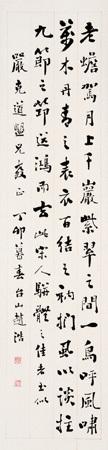 老蟾駕月上千巖紫翠之間一鳥呼風嘯
萬木丹青之表衣百結之衲捫虱以談拄
九節之筇送鴻而去此宋人駢體之佳者書似
嚴克道盟兄教正 丁卯暮春台山趙浩